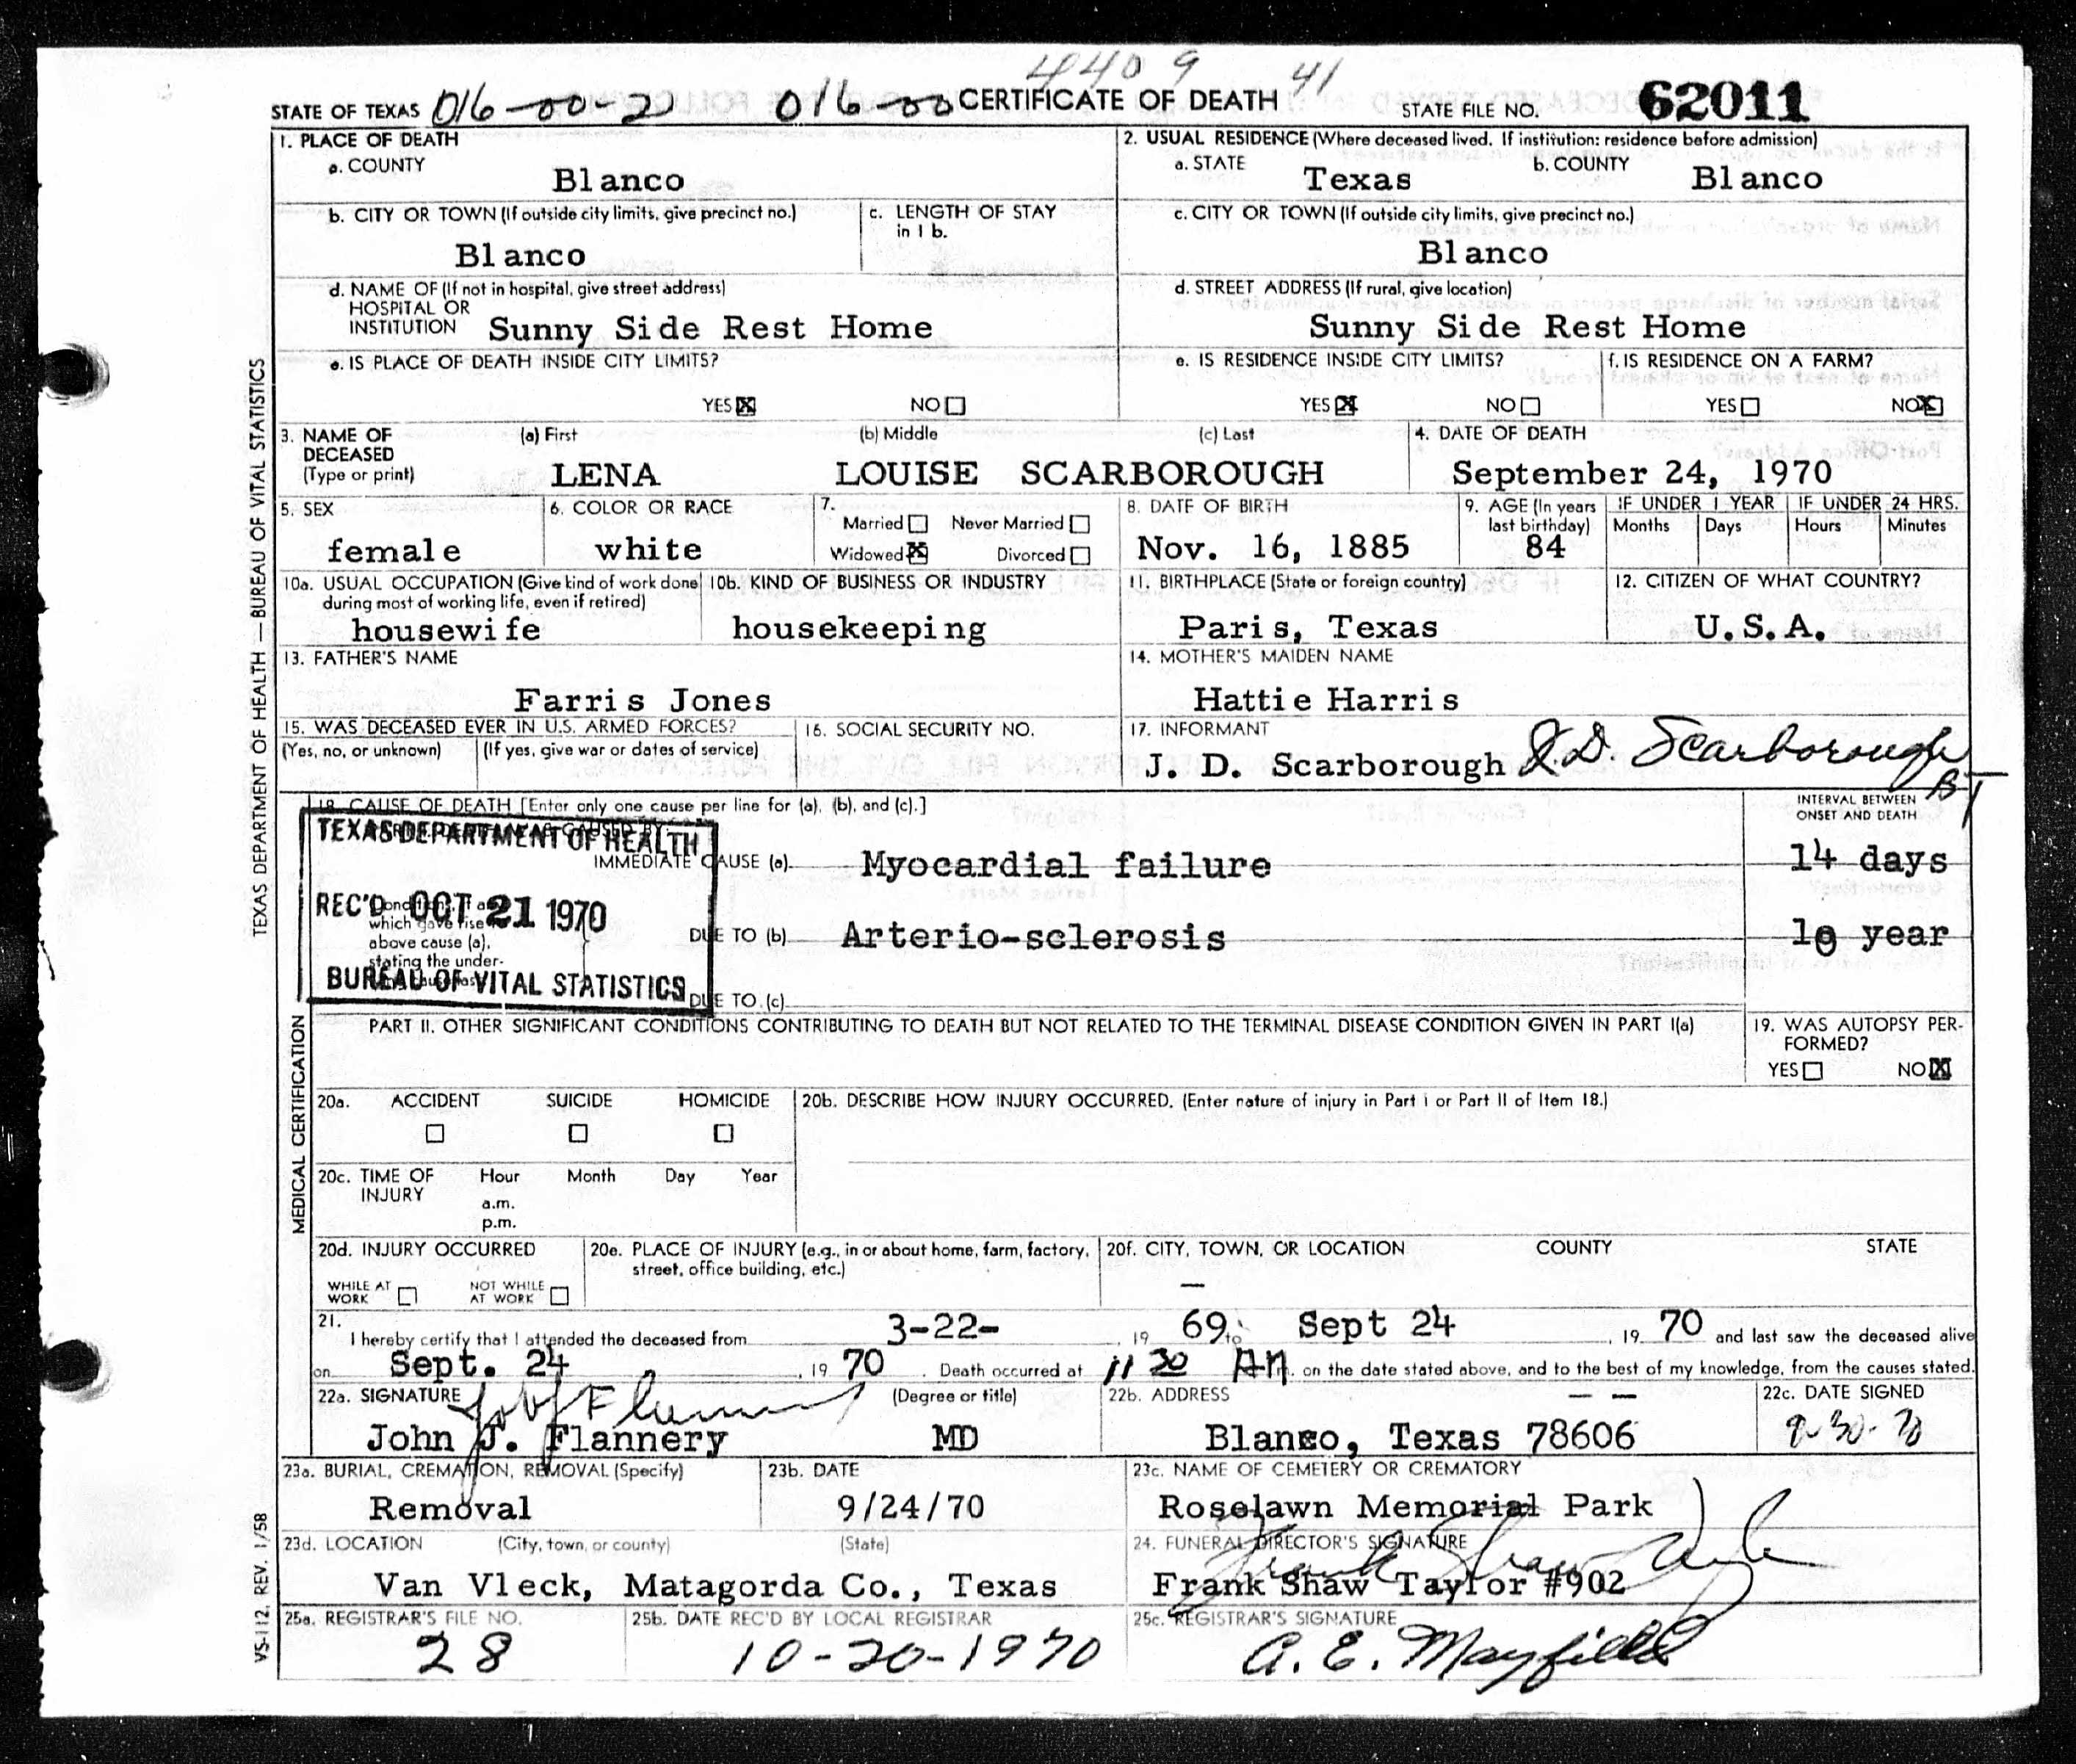 4409 41
STATE OF TEXAS 016-00-2 016-00 CERTIFICATE OF DEATH STATE FILE NO. 62011
1. PLACE OF DEATH
a. COUNTY
Blanco
2. USUAL RESIDENCE (Where deceased lived. If institution: residence before admission)
a. STATE b. COUNTY
Texas Blanco
b. CITY OR TOWN (If outside city limits, give precinct no.)
Blanco
c. LENGTH OF STAY
in 1 b.
c. CITY OR TOWN (If outside city limits, give precinct no.)
Blanco
d. NAME OF (If not in hospital, give street address)
HOSPITAL OR
INSTITUTION Sunny Side Rest Home
d. STREET ADDRESS (If rural, give location)
Sunny Side Rest Home
e. IS PLACE OF DEATH INSIDE CITY LIMITS?
YES X NO
e. IS RESIDENCE INSIDE CITY LIMITS?
YES X NO
f. IS RESIDENCE ON A FARM?
YES NO X
3. NAME OF
DECEASED
(Type or print)
(a) First (b) Middle (c) Last
LENA LOUISE SCARBOROUGH
4. DATE OF DEATH
September 24, 1970
5. SEX
female
6. COLOR OR RACE
white
7.
Married Never Married
Widowed X Divorced
8. DATE OF BIRTH
Nov. 16, 1885
9. AGE (In years
last birthday)
84
IF UNDER 1 YEAR
Months Days
IF UNDER 24 HRS.
Hours Minutes
10a. USUAL OCCUPATION (Give kind of work done
during most of working life, even if retired)
housewife
10b. KIND OF BUSINESS OR INDUSTRY
housekeeping
11. BIRTHPLACE (State or foreign country)
Paris, Texas
12. CITIZEN OF WHAT COUNTRY?
U.S.A.
13. FATHER'S NAME
Farris Jones
14. MOTHER'S MAIDEN NAME
Hattie Harris
15. WAS DECEASED EVER IN U.S. ARMED FORCES?
(Yes, no, or unknown) (If yes, give war or dates of service)
16. SOCIAL SECURITY NO.
17. INFORMANT
J. D. Scarborough J.D. Scarborough
BT
18. CAUSE OF DEATH [Enter only one cause per line for (a), (b), and (c).]
INTERVAL BETWEEN
ONSET AND DEATH
TEXAS DEPARTMENT OF HEALTH
REC'D OCT 21 1970
BUREAU OF VITAL STATISTICS
IMMEDIATE CAUSE (a) Myocardial failure 14 days
which gave rise to
above cause (a),
stating the under-
DUE TO (b) Arterio-sclerosis 10 year
DUE TO (c)
PART II. OTHER SIGNIFICANT CONDITIONS CONTRIBUTING TO DEATH BUT NOT RELATED TO THE TERMINAL DISEASE CONDITION GIVEN IN PART I(a)
19. WAS AUTOPSY PER-
FORMED?
YES NO X
20a. ACCIDENT SUICIDE HOMICIDE
20b. DESCRIBE HOW INJURY OCCURRED. (Enter nature of injury in Part I or Part II of Item 18.)
20c. TIME OF
INJURY
Hour Month Day Year
a.m.
p.m.
20d. INJURY OCCURRED
WHILE AT
WORK
NOT WHILE
AT WORK
20e. PLACE OF INJURY (e.g., in or about home, farm, factory,
street, office building, etc.)
20f. CITY, TOWN, OR LOCATION COUNTY STATE
—
21.
I hereby certify that I attended the deceased from 3-22-, 19 69, to Sept 24, 19 70 and last saw the deceased alive
on Sept. 24, 19 70. Death occurred at 11 30 AM. on the date stated above, and to the best of my knowledge, from the causes stated.
22a. SIGNATURE (Degree or title)
John J. Flannery MD
22b. ADDRESS
Blanco, Texas 78606
22c. DATE SIGNED
9-30-70
23a. BURIAL, CREMATION, REMOVAL (Specify)
Removal
23b. DATE
9/24/70
23c. NAME OF CEMETERY OR CREMATORY
Roselawn Memorial Park
23d. LOCATION (City, town, or county) (State)
Van Vleck, Matagorda Co., Texas
24. FUNERAL DIRECTOR'S SIGNATURE
Frank Shaw Taylor #902
25a. REGISTRAR'S FILE NO.
28
25b. DATE REC'D BY LOCAL REGISTRAR
10-20-1970
25c. REGISTRAR'S SIGNATURE
A. E. Mayfield
TEXAS DEPARTMENT OF HEALTH — BUREAU OF VITAL STATISTICS
MEDICAL CERTIFICATION
VS-112, REV. 1/58